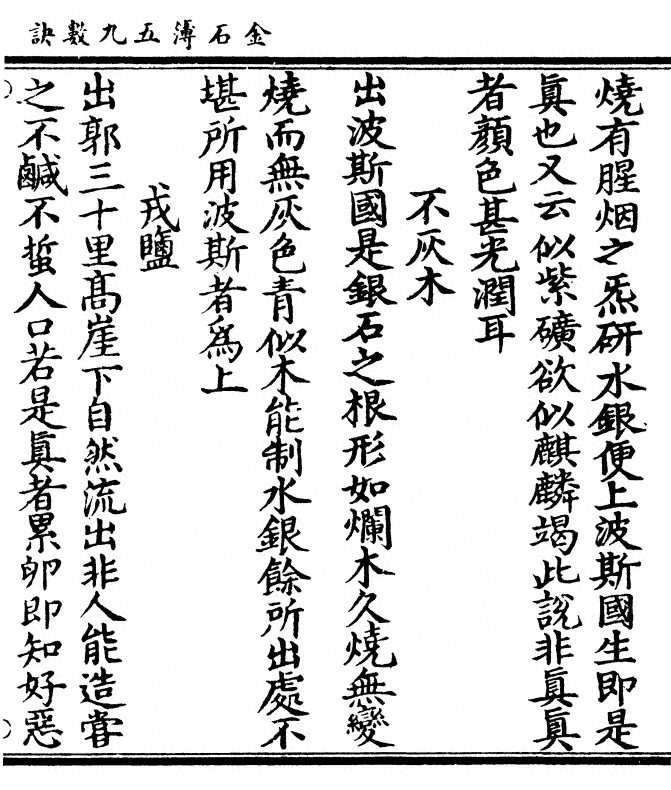 金石薄五九數訣
燒有腥烟之炁研水銀便上波斯國生即是
眞也又云似紫礦欲似麒麟竭此說非眞眞
者顏色甚光潤耳
不灰木
出波斯國是銀石之根形如爛木久燒無變
燒而無灰色青似木能制水銀餘所出處不
堪所用波斯者爲上
戎鹽
出郭三十里高崖下自然流出非人能造甞
之不鹹不蜇人口若是眞者累卵即知好惡